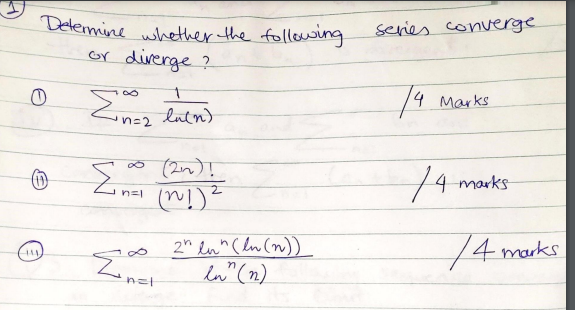 1) Determine whether the following series converge
or diverge ?
(i) ∑_{n=2}^{∞} 1/ln(n) /4 Marks
(ii) ∑_{n=1}^{∞} (2n)!/(n!)^2 /4 marks
(iii) ∑_{n=1}^{∞} 2^n ln^n(ln(n))/ln^n(n) /4 marks